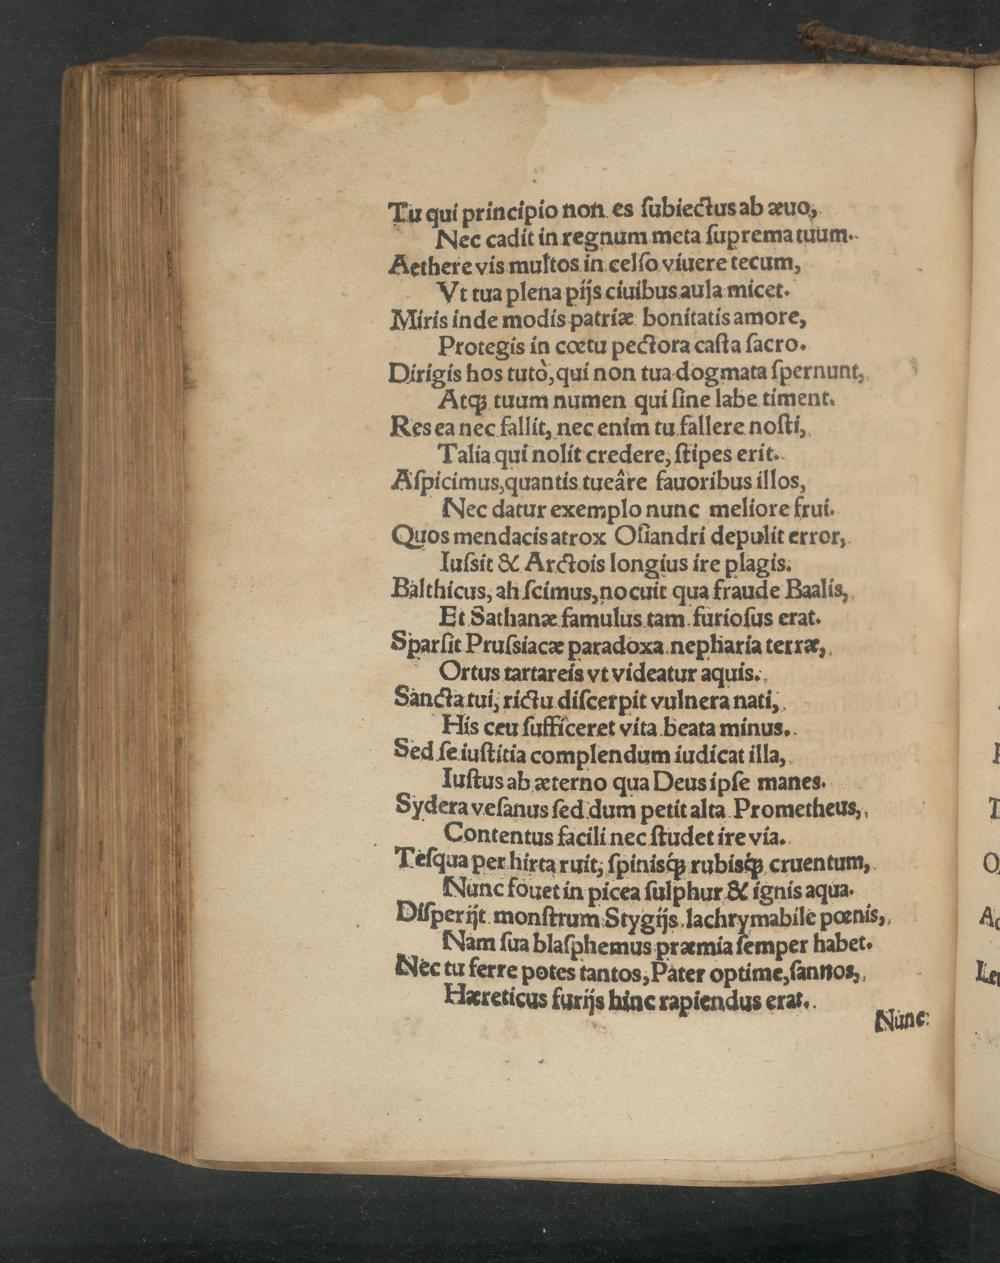 Tu qui principio non es ſubiectus ab æuo,
Nec cadit in regnum meta ſuprema tuum.
Aethere vis multos in celſo viuere tecum,
Vt tua plena pijs ciuibus aula micet.
Miris inde modis patriæ bonitatis amore,
Protegis in cœtu pectora caſta ſacro.
Dirigis hos tutò, qui non tua dogmata ſpernunt,
Atqꝫ tuum numen qui ſine labe timent.
Res ea nec fallit, nec enim tu fallere noſti,
Talia qui nolit credere, ſtipes erit.
Aſpicimus, quantis tueâre fauoribus illos,
Nec datur exemplo nunc meliore frui.
Quos mendacis atrox Oſiandri depulit error,
Iuſsit & Arctois longius ire plagis.
Balthicus, ah ſcimus, nocuit qua fraude Baalis,
Et Sathanæ famulus tam furioſus erat.
Sparſit Pruſsiacæ paradoxa nepharia terræ,
Ortus tartareis vt videatur aquis.
Sancta tui, rictu diſcerpit vulnera nati,
His ceu ſufficeret vita beata minus.
Sed ſe iuſtitia complendum iudicat illa,
Iuſtus ab æterno qua Deus ipſe manes.
Sydera veſanus ſed dum petit alta Prometheus,
Contentus facili nec ſtudet ire via.
Teſqua per hirta ruit, ſpinisqꝫ rubisqꝫ cruentum,
Nunc fouet in picea ſulphur & ignis aqua.
Diſperijt monſtrum Stygijs lachrymabile pœnis,
Nam ſua blaſphemus præmia ſemper habet.
Nec tu ferre potes tantos, Pater optime, ſannos,
Hæreticus furijs hinc rapiendus erat.
Nunc